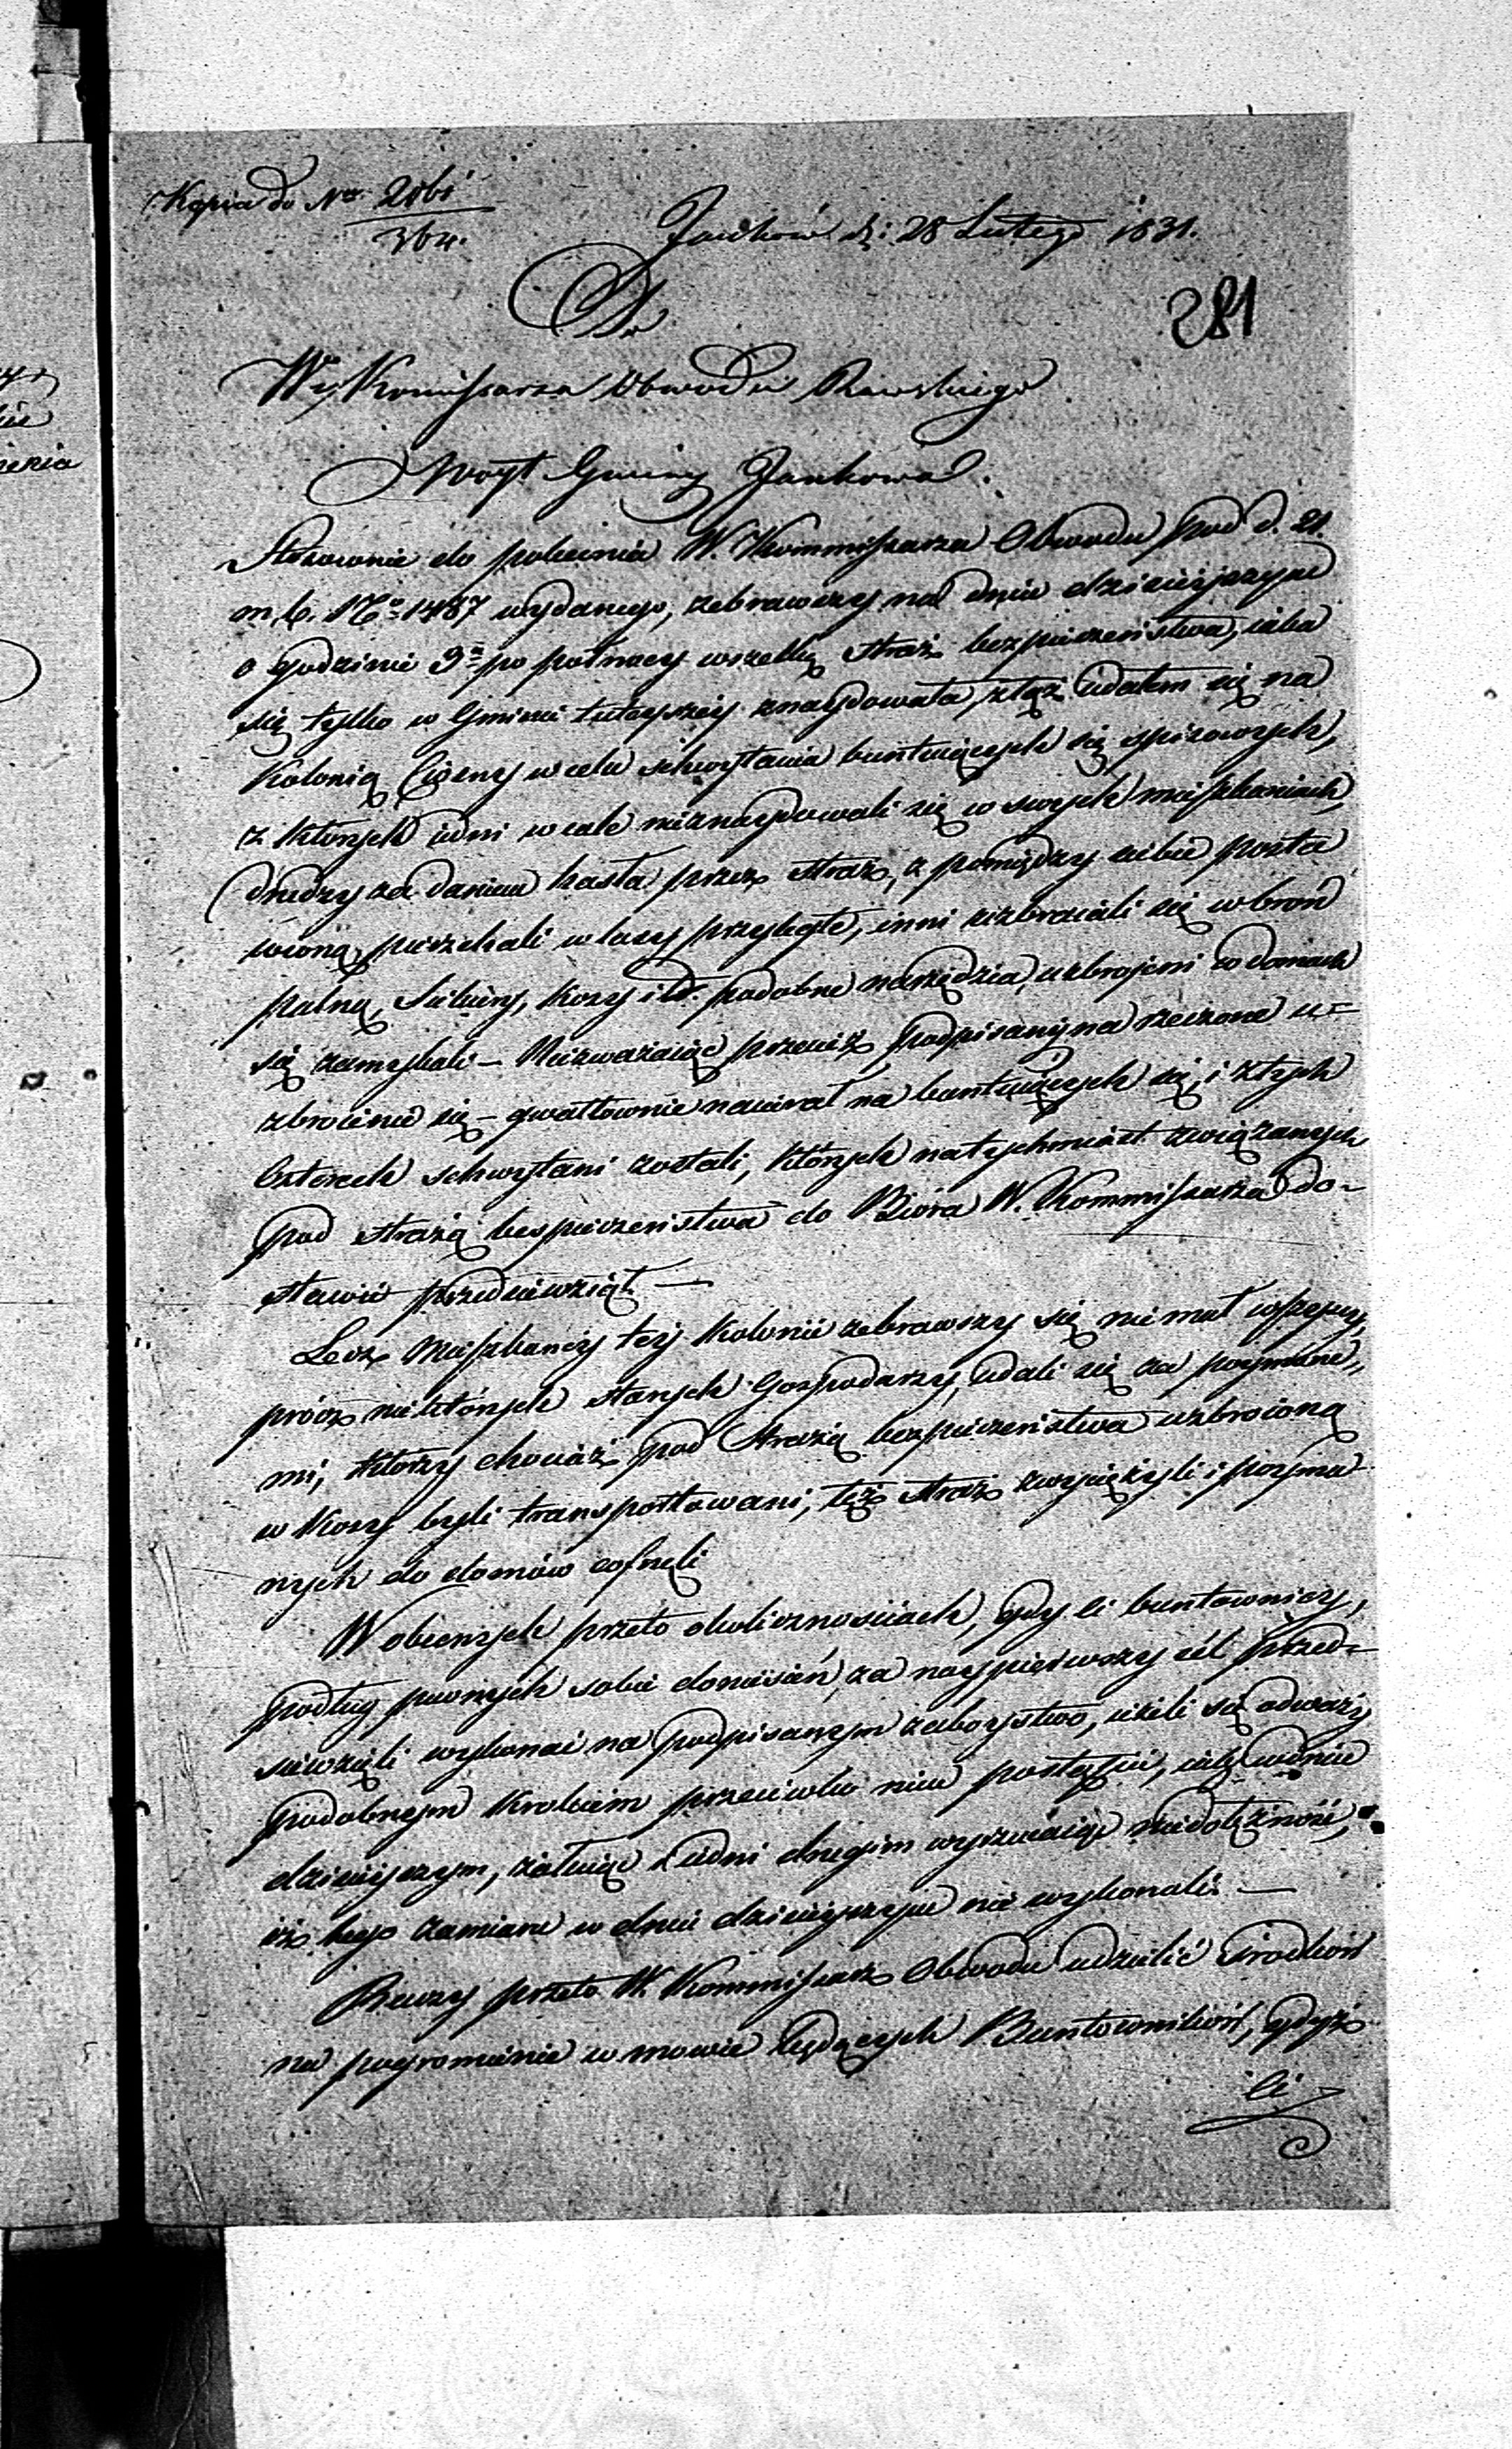 Kopia do Nro 2061
364.
Janków d: 28 Lutego 1831.
281
Do
W. Kommissarza Obwodu Rawskiego
Woyt Gminy Jankowa.
Stosownie do polecenia W. Kommissarza Obwodu pod d. 21.
m. b. No 1487 wydanego, zebrawszy na dniu dzisieyszym
o godzinie 3ej po połnocy wszelką straż bezpieczeństwa, iaka
się tylko w Gminie tuteyszey znaydowała, z tąż udałem się na
Kolonią w celu schwytania buntuiących się spisowych,
z których iedni wcale nieznaydowali się w swych mieszkaniach,
drudzy za daniem hasła przez straż, z pomiędzy siebie posta
wioną, pierzchali w lasy przyległe, inni uzbraiali się w broń
palną, siekiery, kosy i t.d. podobne narzędzia, uzbroieni w domach
się zamykali – Niezważaiąc przecież podpisany na rzeczone u=
zbroienie się – gwałtownie nacierał na buntuiących się, i z tych
czterech schwytani zostali, których natychmiast związanych
pod strażą bespieczeństwa do Bióra W. Kommissarza do-
stawić przedsiewziął. —
Lecz Mieszkańcy tej Kolonii zebrawszy się niemal wszyscy,
prócz niektórych starych Gospodarzy, udali się za poymane,,
mi, którzy chociaż pod Strażą bezpieczeństwa uzbroioną
w Kosy byli transportowani, też straż zwyciężyli i poyma
nych do domów cofneli
W obecnych przeto okolicznościach, gdy ci buntownicy,
podług pewnych sobie doniesień, za naypierwszy cel przed=
siewzięli wykonać na podpisanym zaboystwo, ieżeli się odważy
podobnym krokiem przeciwko nim postąpić, iak w dniu
dzisieyszym, żałuiąc i iedni drugim wyrzucaiąc niedołężność,
iż tego zamiaru w dniu dzisieyszym nie wykonali. —
Raczy przeto W. Kommissarz Obwodu udzielić środków
na pogromienie w mowie będących Buntowników, gdyż
ci